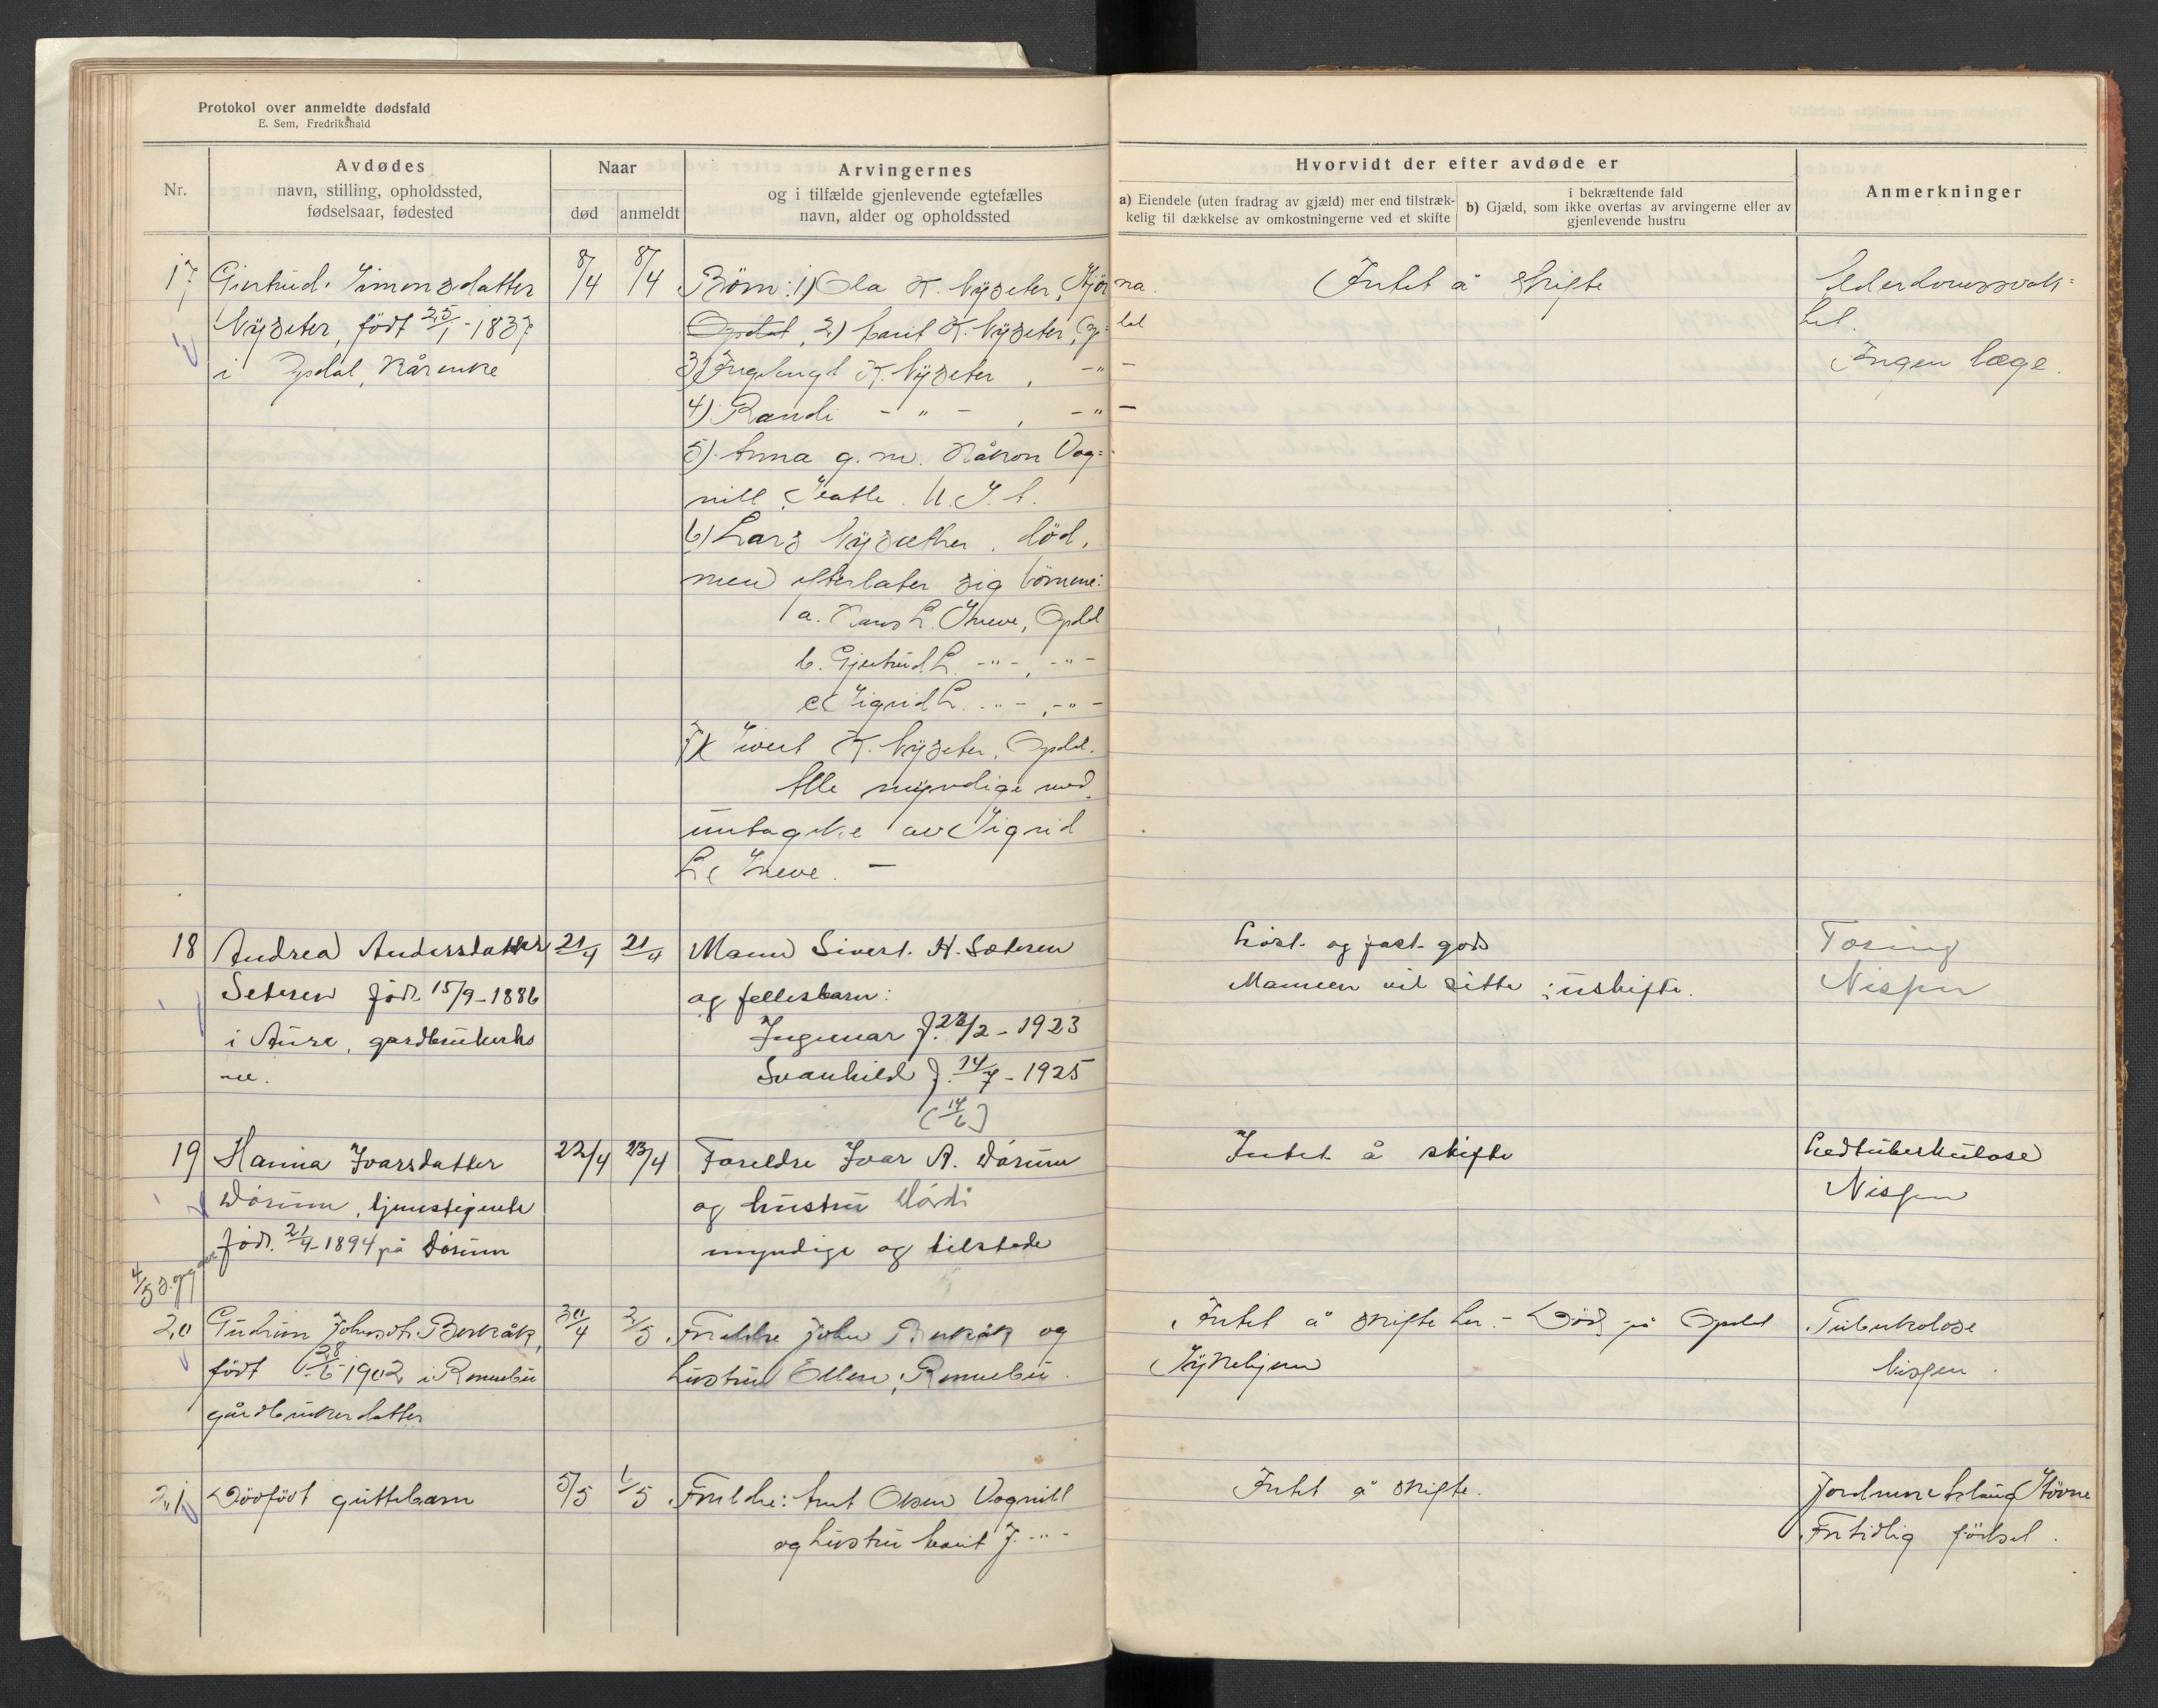 Protokol over anmeldte dødsfald
E. Sem, Fredrikshald
Nr.
Avdødes
navn, stilling, opholdssted,
fødselsaar, fødested
Naar
død
anmeldt
Arvingernes
og i tilfælde gjenlevende egtefælles
navn, alder og opholdssted
Hvorvidt der efter avdøde er
a) Eiendele (uten fradrag av gjæld) mer end tilstræk-
kelig til dækkelse av omkostningerne ved et skifte
i bekræftende fald
b) Gjæld, som ikke overtas av arvingerne eller av
gjenlevende hustru
Anmerkninger
17
Gjertrud Simonsdatter
Nyseter, født 25/1-1837
i Opdal,
8/4
8/4
Børn: 1) Ola K. Nyseter,
Opdal, 2) Marit K. Nyseter, Opdal
3) Ingeborg K. Nyseter, -"-
4) Randi -"-, -"-
5) Anna g. m. Håkon Vog=
nill, Seatle. U.S.A.
6) Lars Nysæther, død,
men efterlater sig børnene:
a. Hans L. Sneve, Opdal
b. Gjertrud L. -"-, -"-
c. Sigrid L. -"-, -"-
7) Sivert K. Nyseter, Opdal.
Alle myndige med
untagelse av Sigrid
L. Sneve. —
Intet å skifte
Alderdomssvak=
het.
Ingen læge.
18
Andrea Andersdatter
Seteren född 15/9-1886
i Aure, gardbrukerko
ne.
21/4
21/4
Mann Sivert H. Sæteren
og fellesbarn:
Ingemar f. 22/2-1923
Svanhild f. 14/7-1925
(14/6)
Løst og fast gods
Mannen vil sitte i uskifte.
Nissen
19
Hanna Ivarsdatter
Dörum, tjenestejente
född 21/9-1894 på Dörum
22/4
23/4
Foreldre Ivar A. Dörum
og hustru Mårdi
myndige og tilstede
Intet å skifte
Ledtuberkulose
Nissen
4/5
20
Gudrun Johnsdtr. Berkåk,
født 28/6-1902 i Rennebu
gårdbrukerdatter
30/4
2/5
Foreldre John Berkåk og
hustru Ellen, Rennebu.
Intet å skifte her. - Død på Opdal
Sykehjem
Tuberkolose
Nissen.
21
Dödfödt guttebarn
5/5
6/5
Foreldre: Arnt Olsen Vognill
og hustru Marit J. -"-
Intet å skifte.
Jordmor
Fortidlig födsel.